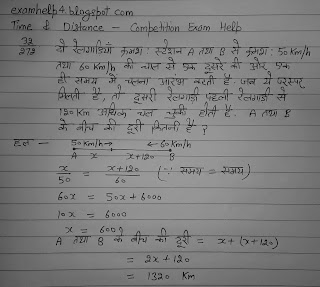 examhelp4.blogspot.com
Time & Distance – Competition Exam Help
32
272
दो रेलगाड़ियाँ क्रमशः स्टेशन A तथा B से क्रमशः 50 Km/h
तथा 60 Km/h की चाल से एक दूसरे की ओर एक
ही समय में चलना आरंभ करती है. जब वे परस्पर
मिलती हैं, तो दूसरी रेलगाड़ी पहली रेलगाड़ी से
120 Km अधिक चल चुकी होती है. A तथा B
के बीच की दूरी कितनी है ?
हल – 50 Km/h→ ←60 Km/h
A x x+120 B
x/50 = (x+120)/60 (∵ समय = समय)
60x = 50x + 6000
10x = 6000
x = 600
A तथा B के बीच की दूरी = x + (x+120)
= 2x + 120
= 1320 Km